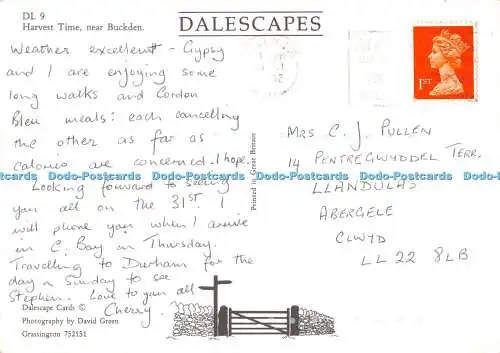 DL 9
Harvest Time, near Buckden.
DALESCAPES
Weather excellent - Gypsy
and I are enjoying some
long walks and Cordon
Bleu meals: each cancelling
the other as far as
calories are concerned. I hope.
Looking forward to seeing
you all on the 31ST. I
will phone you when I arrive
in C. Bay on Thursday.
Travelling to Durham for the
day on Sunday to see
Stephen. Love to you all
Cherry.
Dalescape Cards ©
Photography by David Green
Grassington 752151
Printed in Great Britain
1ST
MRS C. J. PULLEN
14 PENTREGWYDDEL TERR.
LLANDULAS
ABERGELE
CLWYD
LL 22 8LB
Dodo-Postcards Dodo-Postcards Dodo-Postcards Dodo-Postcards Dodo-Postcards